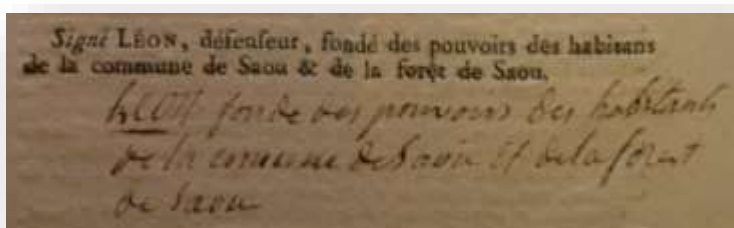 Signé LÉON, défenseur, fondé des pouvoirs des habitans
de la commune de Saou & de la forêt de Saou.
LEON fondé des pouvoirs des habitants
de la commune de Saou et de la forest
de Saou